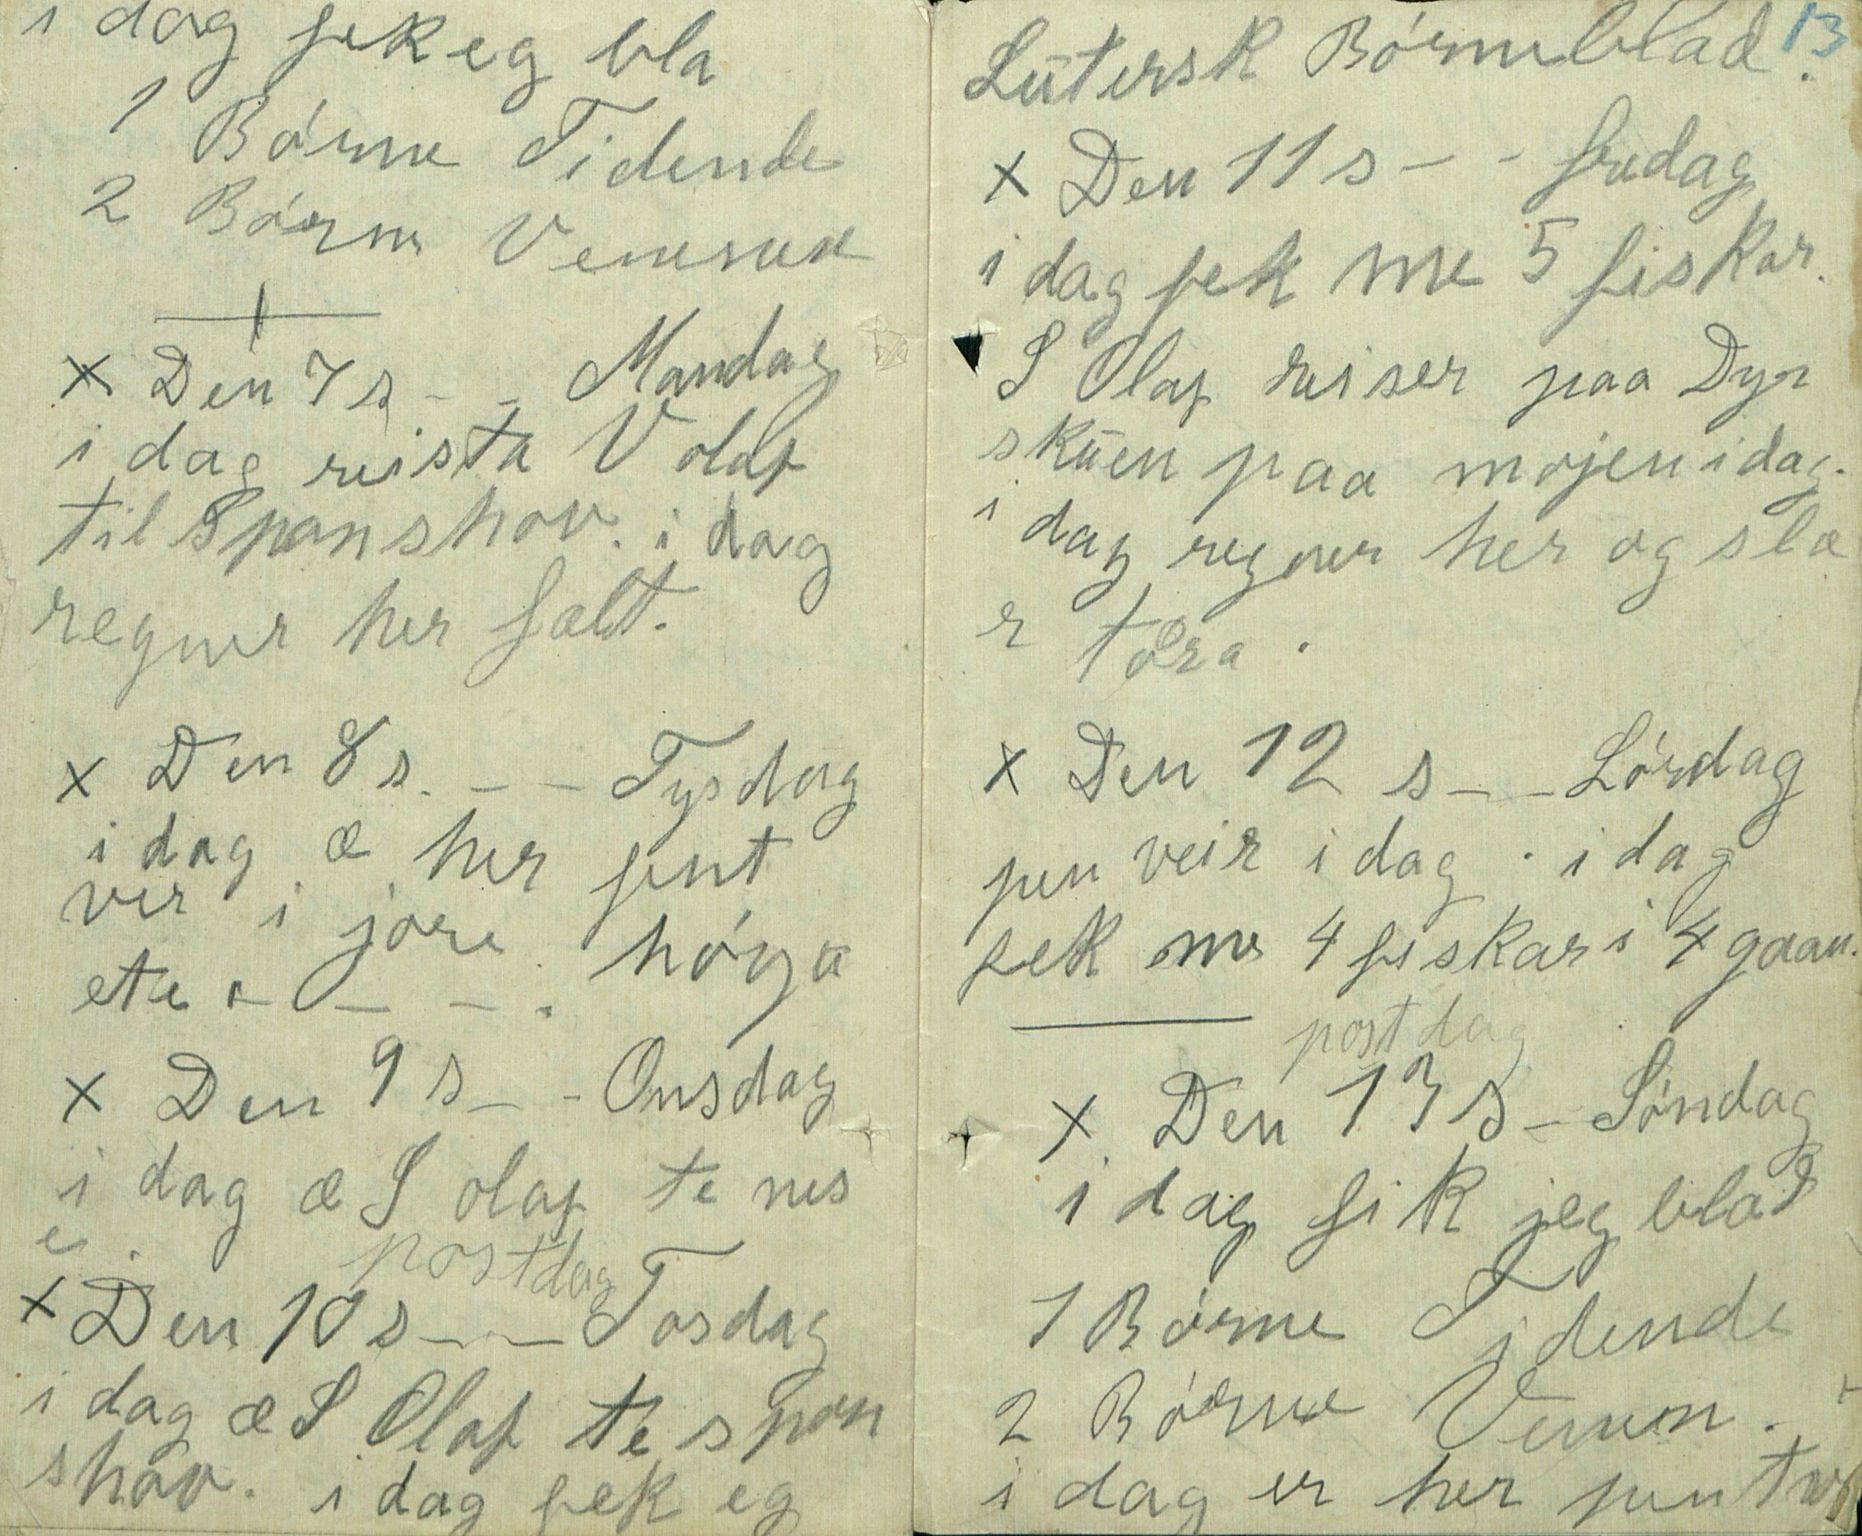 i dag fek eg bla
1 Børne Tidende
2 Børne
x Den 7 s - - Mandag
i dag reista V olaf
til Spanshov. i dag
regner her fælt.
x Den 8 s. - - Tysdag
i dag æ her pent
ver i jore. høya
ete - - - .
x Den 9 s - - Onsdag
i dag æ S olaf te nes
e.
postdag
x Den 10 s - - Tosdag
i dag æ S Olaf te span
shov. i dag fek eg
13
Lūtersk Børneblad.
x Den 11 s - - fredag
i dag fek me 5 fiskar.
S Olaf reiser paa Dyr
skūen paa mojen idag.
i dag regner her og slæ
r tora.
x Den 12 s - - Lørdag
pen veir i dag. i dag
fek me 4 fiskar i 4 gaan.
postdag
x. Den 13 s - Søndag
i dag fik jeg blad
1 Børne Tidende
2 Børne Vennen.
i dag er her pent